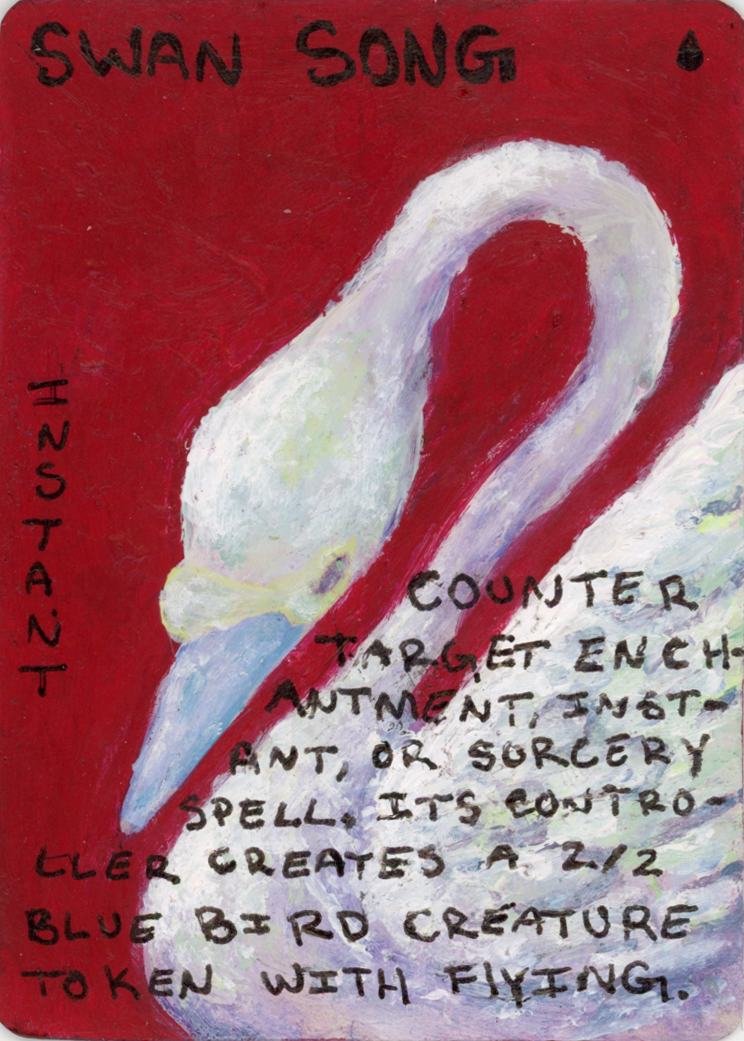 SWAN SONG
INSTANT
COUNTER
TARGET ENCH-
ANTMENT, INST-
ANT, OR SORCERY
SPELL. ITS CONTRO-
LLER CREATES A 2/2
BLUE BIRD CREATURE
TOKEN WITH FLYING.